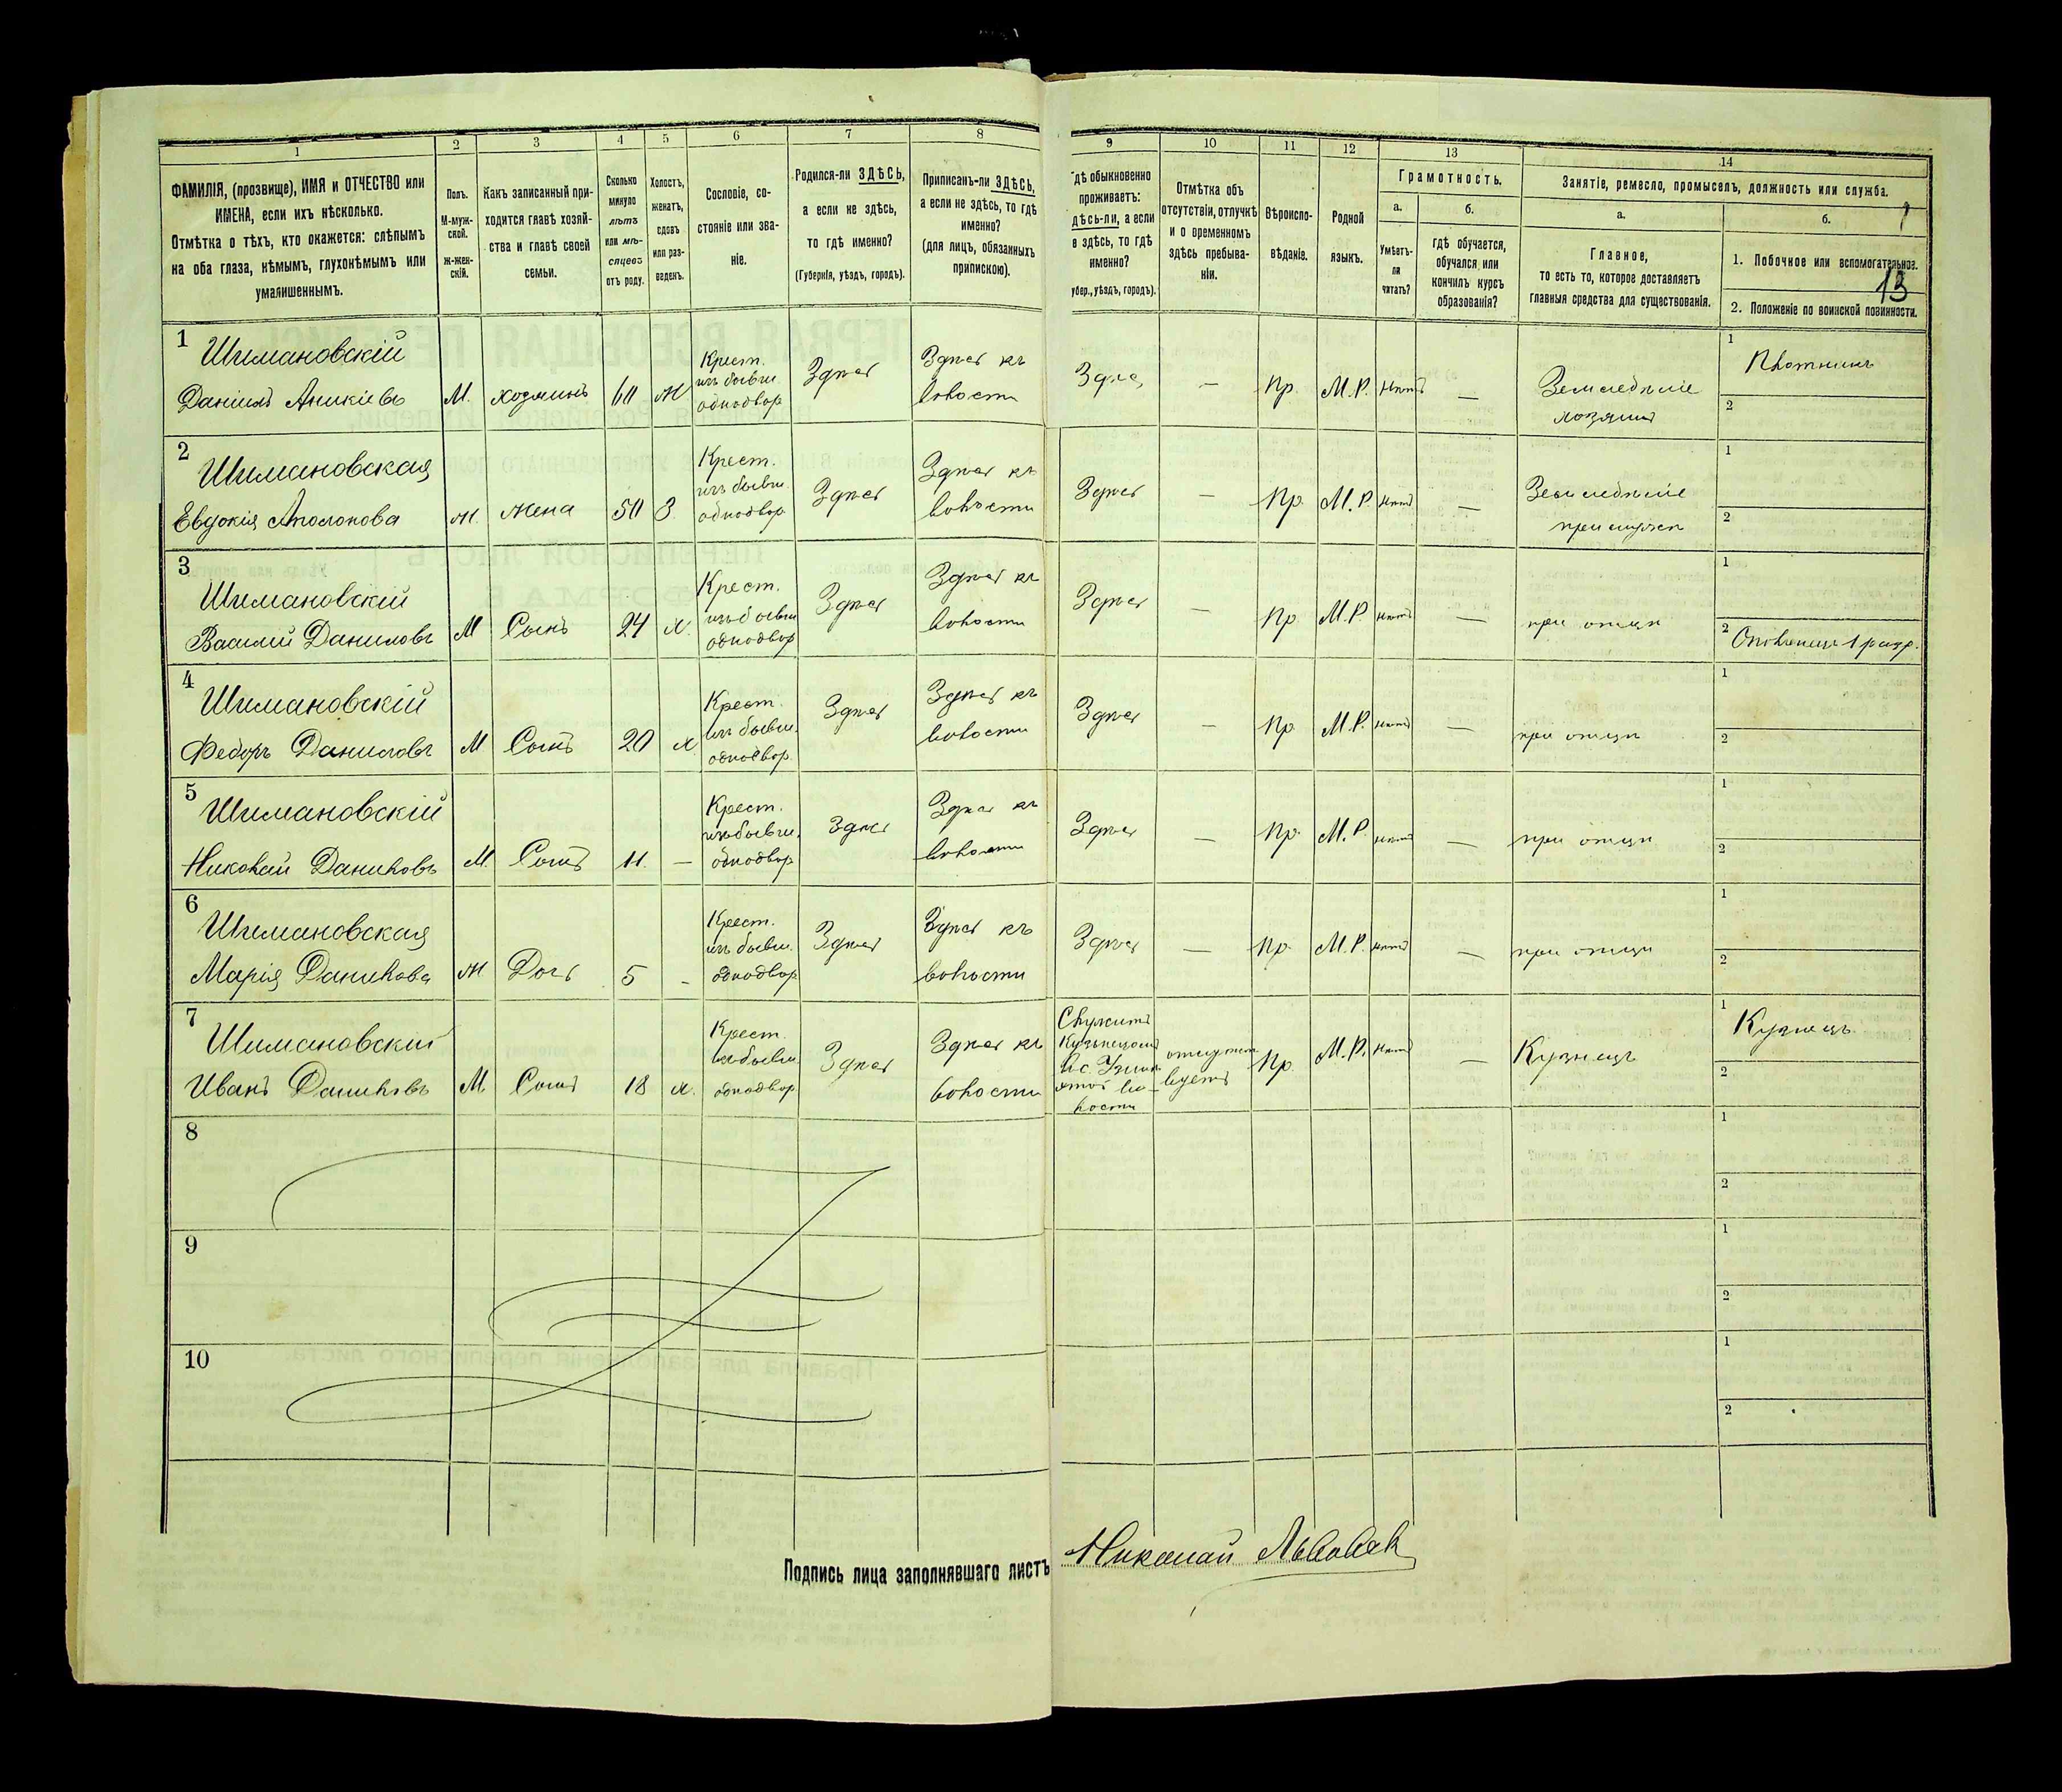 1 2 3 4 5 6 7 8
ФАМИЛІЯ, (прозвище), ИМЯ и ОТЧЕСТВО или
ИМЕНА, если ихъ нѣсколько.
Отмѣтка о тѣхъ, кто окажется: слѣпымъ
на оба глаза, нѣмымъ, глухонѣмымъ или
умалишеннымъ.
Полъ.
М-муж-
ской.
Ж-жен-
скій.
Какъ записанный при-
ходится главѣ хозяй-
ства и главѣ своей
семьи.
Сколько
минуло
лѣтъ
или мѣ-
сяцевъ
отъ роду.
Холостъ,
женатъ,
вдовъ
или раз-
веденъ.
Сословіе, со-
стояніе или зва-
ніе.
Родился-ли ЗДѢСЬ,
а если не здѣсь,
то гдѣ именно?
(Губернія, уѣздъ, городъ).
Приписанъ-ли ЗДѢСЬ,
а если не здѣсь, то гдѣ
именно?
(для лицъ, обязанныхъ
припискою).
9 10 11 12 13 14
дѣ обыкновенно
проживаетъ:
дѣсь-ли, а если
е здѣсь, то гдѣ
именно?
убер., уѣздъ, городъ).
Отмѣтка объ
отсутствіи, отлучкѣ
и о временномъ
здѣсь пребыва-
ніи.
Вѣроиспо-
вѣданіе.
Родной
языкъ.
Грамотность.
а.
Умѣетъ-
ли
читать?
б.
гдѣ обучается,
обучался или
кончилъ курсъ
образованія?
Занятіе, ремесло, промыселъ, должность или служба.
а.
Главное,
то есть то, которое доставляетъ
главныя средства для существованія.
б.
1. Побочное или вспомогательное.
13
2. Положеніе по воинской повинности.
1
Шимановскій
Даніилъ Аникіевъ
М. хозяинъ 60 Ж
Крест.
изъ бывш.
однодвор
Здѣсь
Здѣсь къ
волости
Здѣсь — Пр. М.Р. нѣтъ —
Земледѣліе
хозяинъ
1 Плотникъ
2
2
Шимановская
Евдокія Аполонова
ж. жена 50 З
Крест.
изъ бывш.
однодвор
Здѣсь
Здѣсь къ
волости
Здѣсь — Пр. М.Р. нѣтъ —
Земледѣліе
при мужѣ
1
2
3
Шимановскій
Василій Даниловъ
М Сынъ 24 х.
Крест.
изъ бывш
однодвор
Здѣсь
Здѣсь къ
волости
Здѣсь — Пр. М.Р. нѣтъ — при отцѣ
1
2 Ополченецъ 1 разр.
4
Шимановскій
Федоръ Даниловъ
М Сынъ 20 х
Крест.
изъ бывш.
однодвор
Здѣсь
Здѣсь къ
волости
Здѣсь — Пр. М.Р. нѣтъ — при отцѣ
1
2
5
Шимановскій
Николай Даниловъ
М. Сынъ 11. —
Крест.
изъ бывш.
однодвор
Здѣсь
Здѣсь къ
волости
Здѣсь — Пр. М.Р. нѣтъ — при отцѣ
1
2
6
Шимановская
Марія Данилова
ж Дочь 5 -
Крест.
изъ бывш.
однодвор
Здѣсь
Здѣсь къ
волости
Здѣсь — Пр. М.Р. нѣтъ — при отцѣ
1
2
7
Шимановскій
Иванъ Даниловъ
М Сынъ 18 х.
Крест.
изъ бывш
однодвор
Здѣсь
Здѣсь къ
волости
Служитъ
Кузнецомъ
в с.
этой во-
лости
отсутст
вуетъ
Пр. М.Р. нѣтъ — Кузнецъ
1 Кузнецъ
2
8
1
2
9
1
2
10
1
2
Подпись лица заполнявшаго листъ Николай